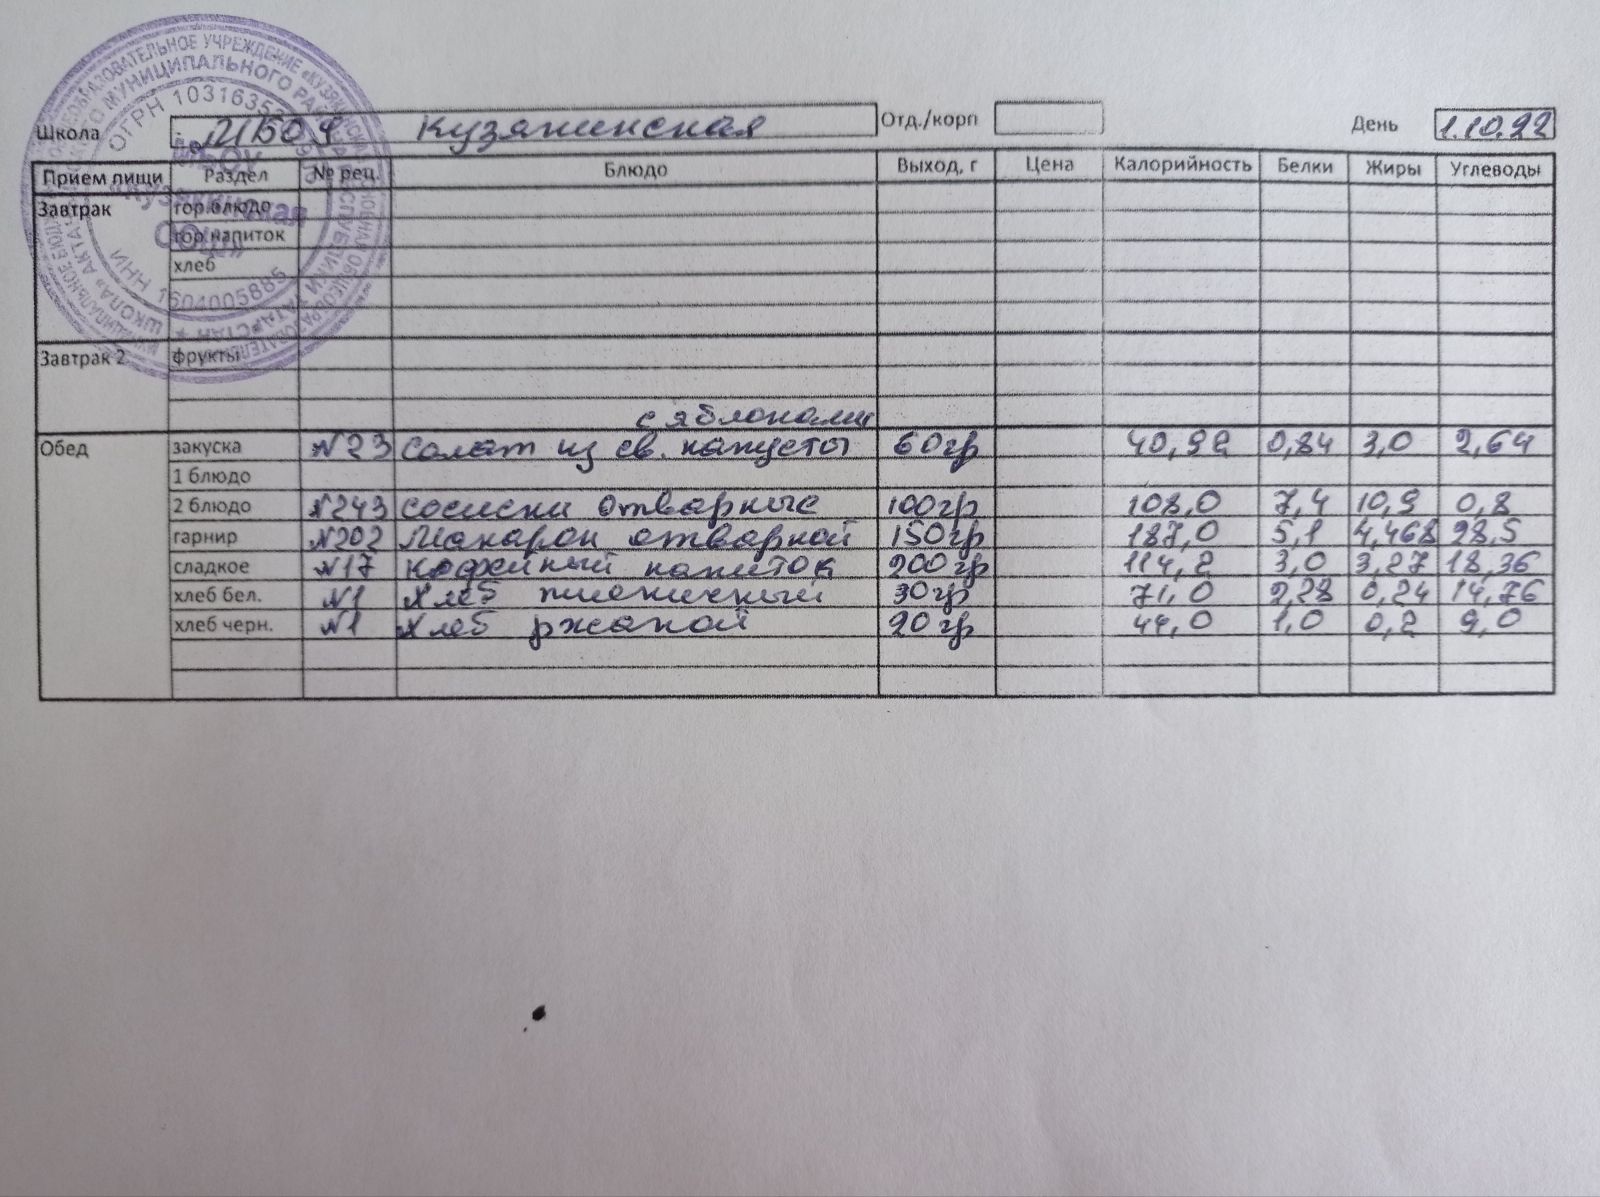 Школа МБОУ Кузякинская Отд./корп День 1.10.22
Прием пищи Раздел № рец. Блюдо Выход, г Цена Калорийность Белки Жиры Углеводы
Завтрак гор.блюдо
гор.напиток
хлеб
Завтрак 2 фрукты
с яблоками
Обед закуска №23 Салат из св. капусты 60гр 40,92 0,84 3,0 2,64
1 блюдо
2 блюдо №243 сосиски отварные 100гр 108,0 7,4 10,9 0,8
гарнир №202 Макарон отварной 150гр 187,0 5,1 4,468 28,5
сладкое №17 кофейный напиток 200гр 114,2 3,0 3,27 18,36
хлеб бел. №1 Хлеб пшеничный 30гр 71,0 2,28 0,24 14,76
хлеб черн. №1 Хлеб ржаной 20гр 44,0 1,0 0,2 9,0
МБОУ
«Кузякинская
СОШ»
ИНН 1604005885